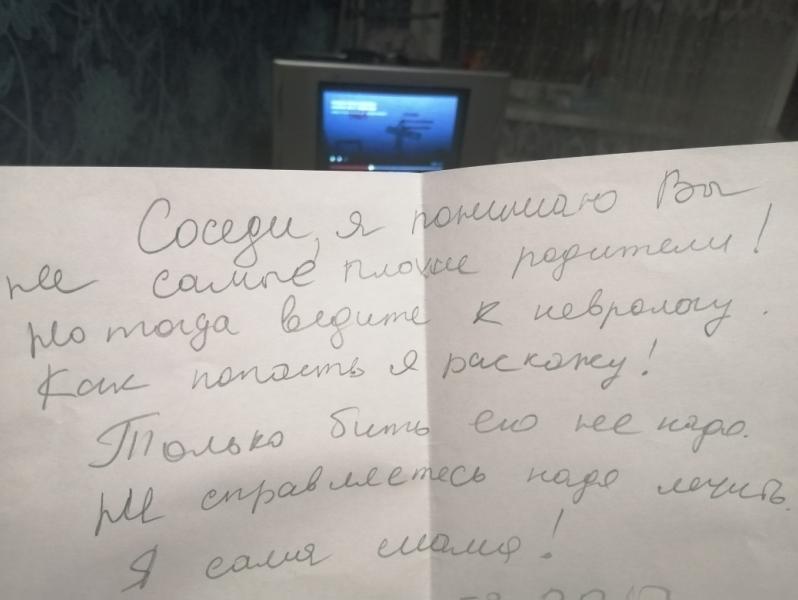 Соседи, я понимаю Вы
не самые плохие родители!
Но тогда ведите к неврологу.
Как попасть я раскажу!
Только бить его не надо.
Не справляетесь надо лечить.
Я сама мама!